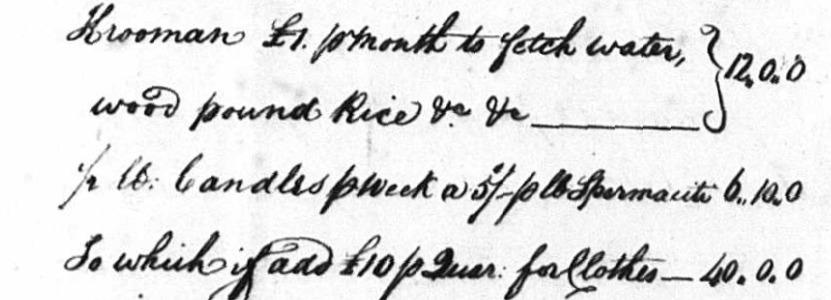 Krooman £1. p month to fetch water, } 12..0..0
wood pound Rice &c &c
½ lb: Candles p week a 5/- p lb Spermaciti 6..10..0
To which if add £10 p Quar: for Clothes — 40..0..0